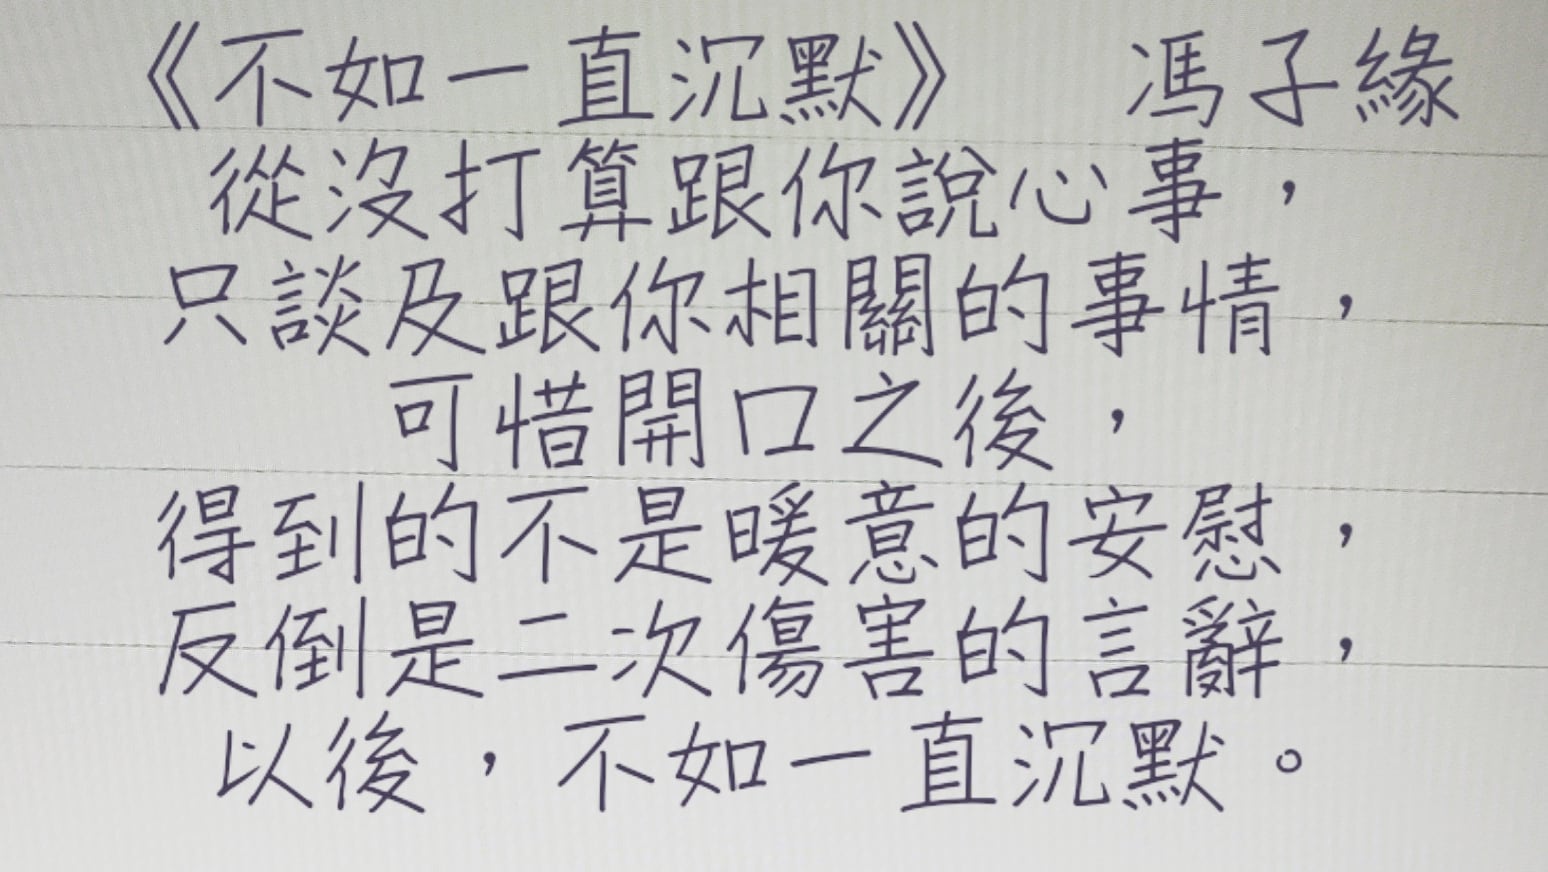 《不如一直沉默》 馮子緣
從沒打算跟你說心事，
只談及跟你相關的事情，
可惜開口之後，
得到的不是暖意的安慰，
反倒是二次傷害的言辭，
以後，不如一直沉默。